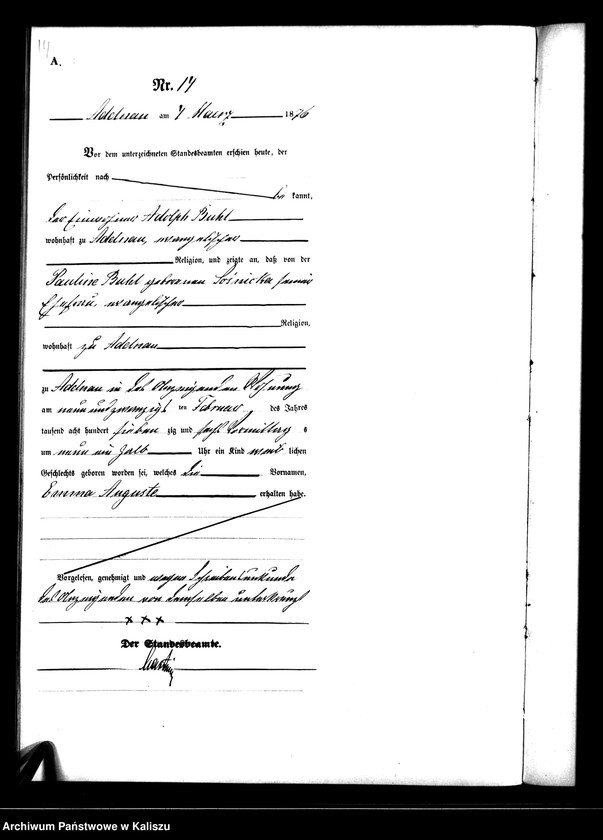 14
A.
Nr. 14
Adelnau am 7 Maerz 1876
Vor dem unterzeichneten Standesbeamten erschien heute, der
Persönlichkeit nach
be kannt,
der Einwohner Adolph Buhl
wohnhaft zu Adelnau, evangelischer
Religion, und zeigte an, daß von der
Pauline Buhl geborenen seiner
Ehefrau, evangelischer
Religion,
wohnhaft zu Adelnau
zu Adelnau in des Anzeigenden Wohnung
am neun und zwanzigsten Februar des Jahres
tausend acht hundert sieben zig und sechs Vormittags
um neun ein halb Uhr ein Kind weib lichen
Geschlechts geboren worden sei, welches die Vornamen,
Emma Auguste erhalten habe.
Vorgelesen, genehmigt und wegen Schreibensunkunde
des Anzeigenden von demselben unterkreuzt
x x x
Der Standesbeamte.
Archiwum Państwowe w Kaliszu